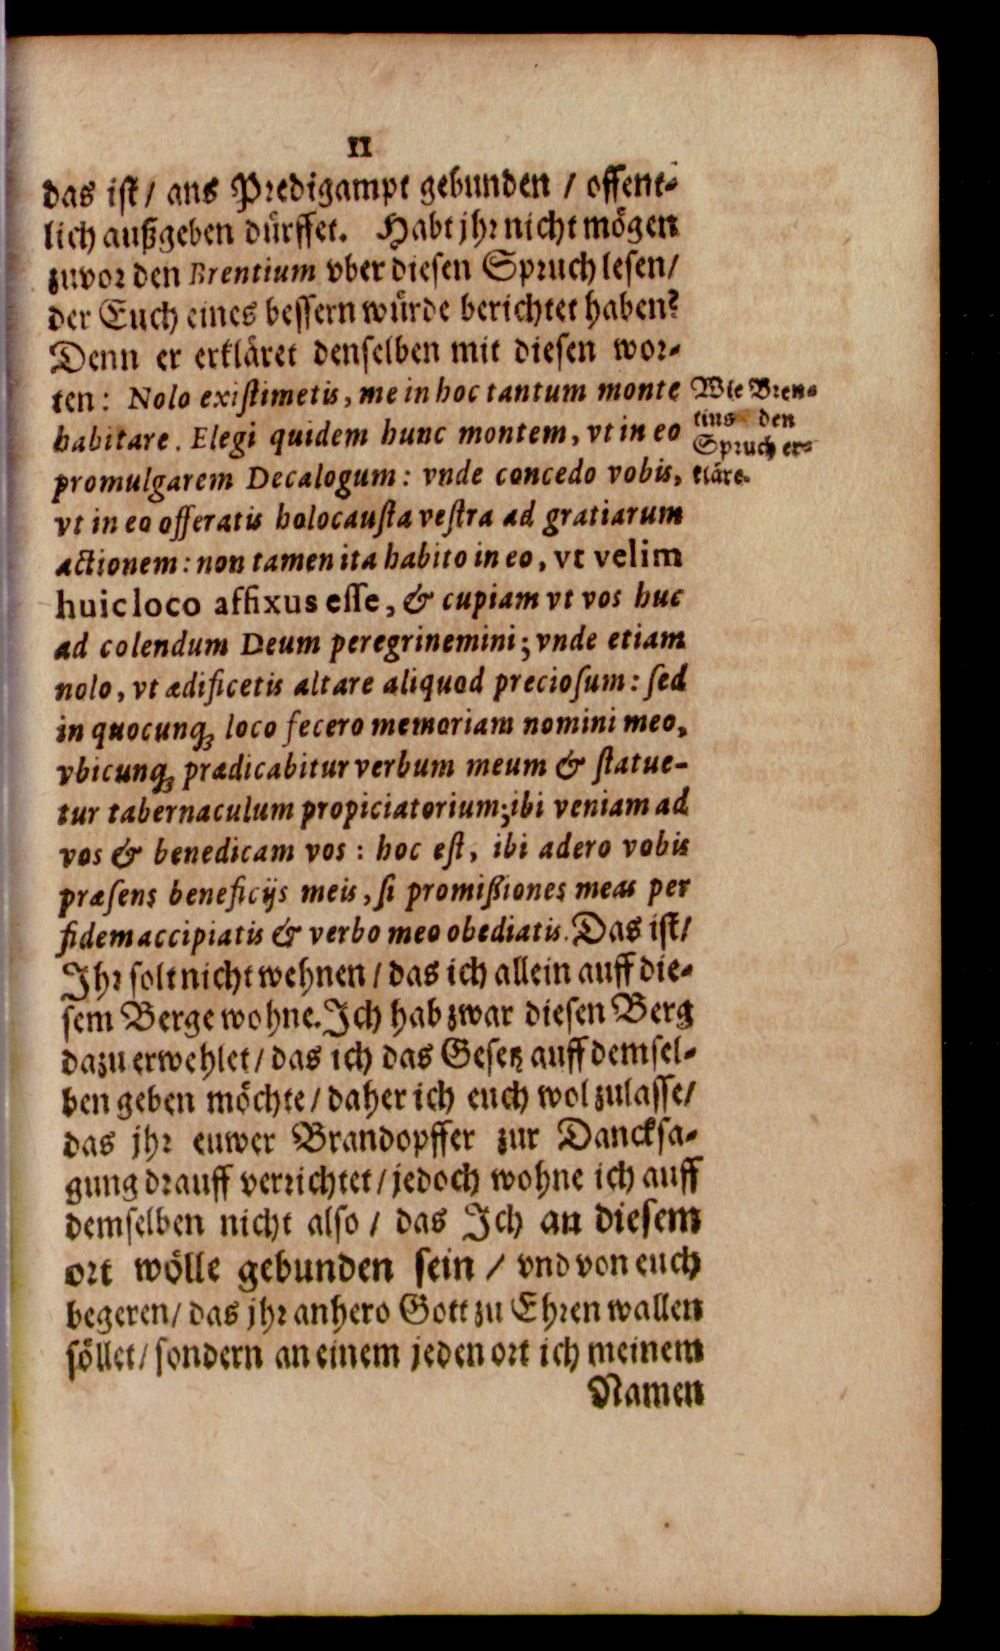 11
das ist / ans Predigampt gebunden / offent-
lich außgeben duͤrffet. Habt jhr nicht moͤgen
zuvor den Brentium vber diesen Spruch lesen /
der Euch eines bessern wuͤrde berichtet haben?
Denn er erklaͤret denselben mit diesen wor-
ten: Nolo existimetis, me in hoc tantum monte
habitare. Elegi quidem hunc montem, vt in eo
promulgarem Decalogum: vnde concedo vobis,
vt in eo offeratis holocausta vestra ad gratiarum
actionem: non tamen ita habito in eo, vt velim
huic loco affixus esse, & cupiam vt vos huc
ad colendum Deum peregrinemini; vnde etiam
nolo, vt ædificetis altare aliquod preciosum: sed
in quocunq; loco fecero memoriam nomini meo,
vbicunq; prædicabitur verbum meum & statue-
tur tabernaculum propiciatorium; ibi veniam ad
vos & benedicam vos: hoc est, ibi adero vobis
præsens beneficijs meis, si promißiones meas per
fidem accipiatis & verbo meo obediatis. Das ist /
Jhr solt nicht wehnen / das ich allein auff die-
sem Berge wohne. Jch hab zwar diesen Berg
dazu erwehlet / das ich das Gesetz auff demsel-
ben geben moͤchte / daher ich euch wol zulasse /
das jhr euwer Brandopffer zur Dancksa-
gung drauff verrichtet / jedoch wohne ich auff
demselben nicht also / das Jch an diesem
ort woͤlle gebunden sein / vnd von euch
begeren / das jhr anhero Gott zu Ehren wallen
soͤllet / sondern an einem jeden ort ich meinem
Namen
Wie Bren-
tius den
Spruch er-
klaͤre.